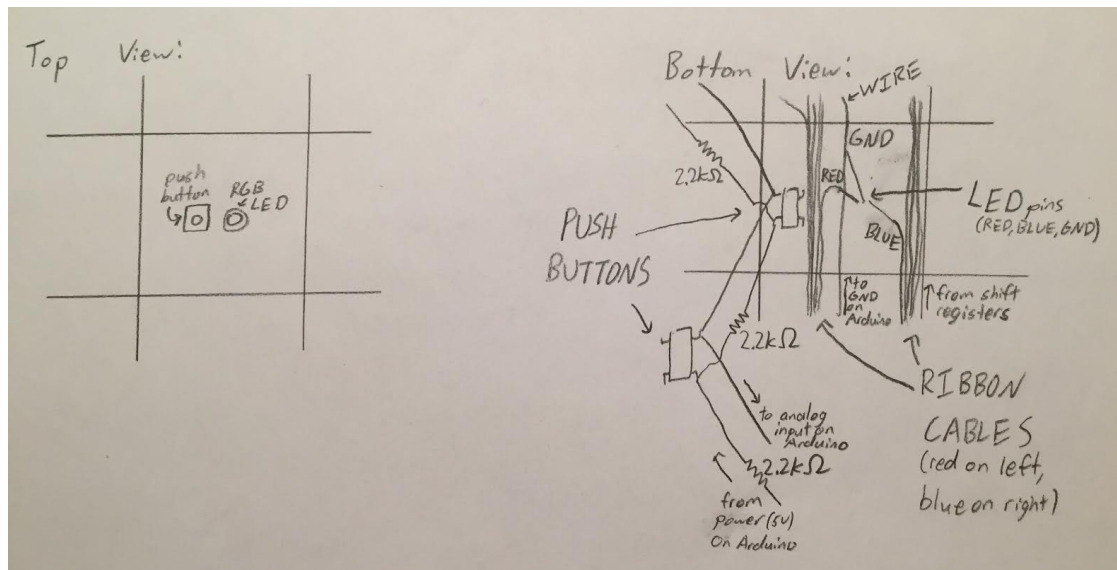 Top View:
push
button
RGB
LED
Bottom View:
WIRE
GND
2.2kΩ
RED
LED pins
(RED, BLUE, GND)
BLUE
PUSH
BUTTONS
to
GND
on
Arduino
from shift
registers
2.2kΩ
RIBBON
CABLES
(red on left,
blue on right)
to analog
input on
Arduino
2.2kΩ
from
power (5V)
on Arduino